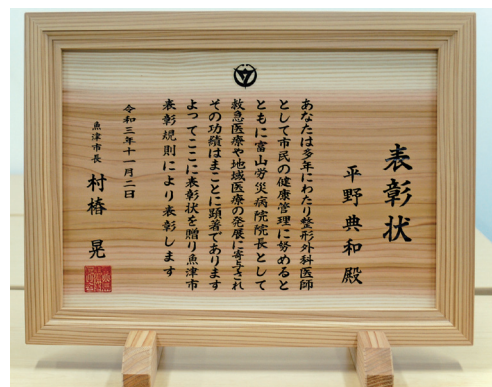 表彰状
平野典和殿
あなたは多年にわたり整形外科医師
として市民の健康管理に努めると
ともに富山労災病院院長として
救急医療や地域医療の発展に寄与され
その功績はまことに顕著であります
よってここに表彰状を贈り魚津市
表彰規則により表彰します
令和三年十一月二日
魚津市長 村椿 晃